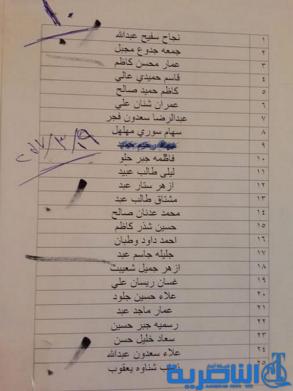 ١ نجاح سفيح عبدالله
٢ جمعه جدوع مجبل
٣ عمار محسن كاظم
٤ قاسم حميدي عالي
٥ كاظم حميد صالح
٦ عمران شنان علي
٧ عبدالرضا سعدون فجر
٨ سهام سوري مهلهل
٩
١٠ فاطمه جبر حلو
١١ ليلى طالب عبيد
١٢ ازهر ستار عبد
١٣ مشتاق طالب عبد
١٤ محمد عدنان صالح
١٥ حسين شذر كاظم
١٦ احمد داود وطبان
١٧ جليله جاسم عبد
١٨ ازهر جميل شعيبث
١٩ غسان ريسان علي
٢٠ علاء حسين جلود
٢١ عمار ماجد عبد
٢٢ رسميه جبر حسين
٢٣ سعاد خليل حسن
٢٤ علاء سعدون عبدالله
٢٥ شناوه يعقوب
الناصرية